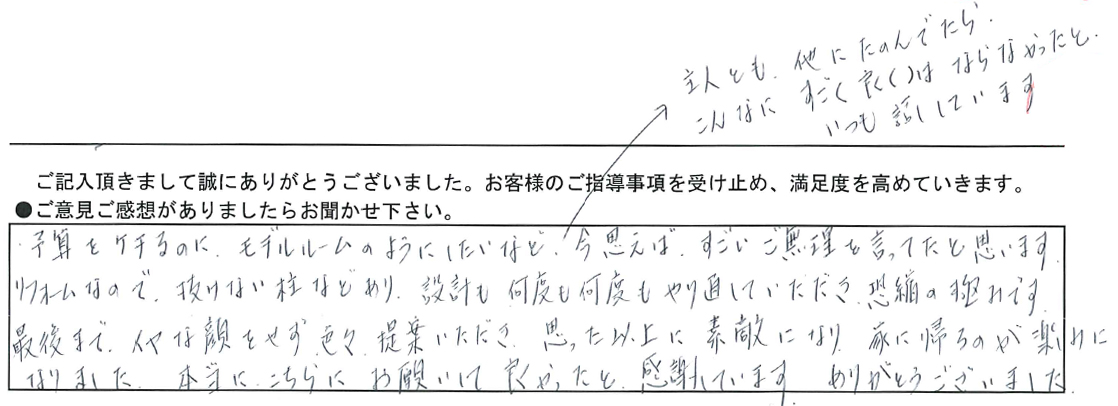 主人とも、他にたのんでたら、
こんなに すごく良く()は ならなかったと、
いつも話しています
ご記入頂きまして誠にありがとうございました。お客様のご指導事項を受け止め、満足度を高めていきます。
●ご意見ご感想がありましたらお聞かせ下さい。
・予算をケチるのに、モデルルームのようにしたいなど、今思えば、すごいご無理を言ってたと思います。
リフォームなので、抜けない柱などあり、設計も何度も何度もやり直していただき、恐縮の極みです。
最後まで、イヤな顔をせず色々提案いただき、思った以上に素敵になり、家に帰るのが楽しみに
なりました。本当に、こちらにお願いして良かったと、感謝しています。ありがとうございました。